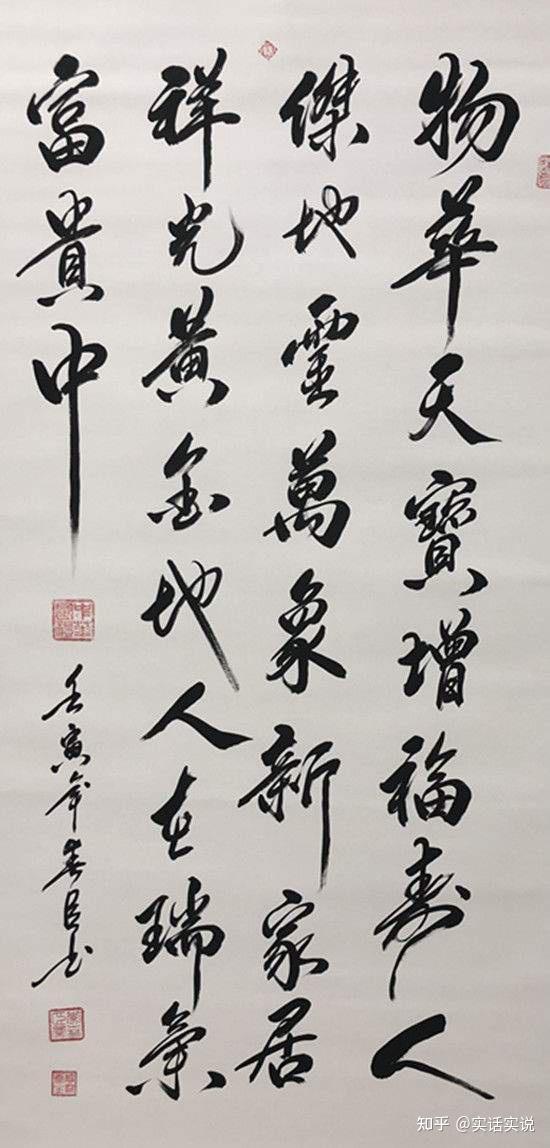 物華天寶增福壽人
傑地靈萬象新家居
祥光黃金地人在瑞氣
富貴中
壬寅年書
知乎 @实话实说